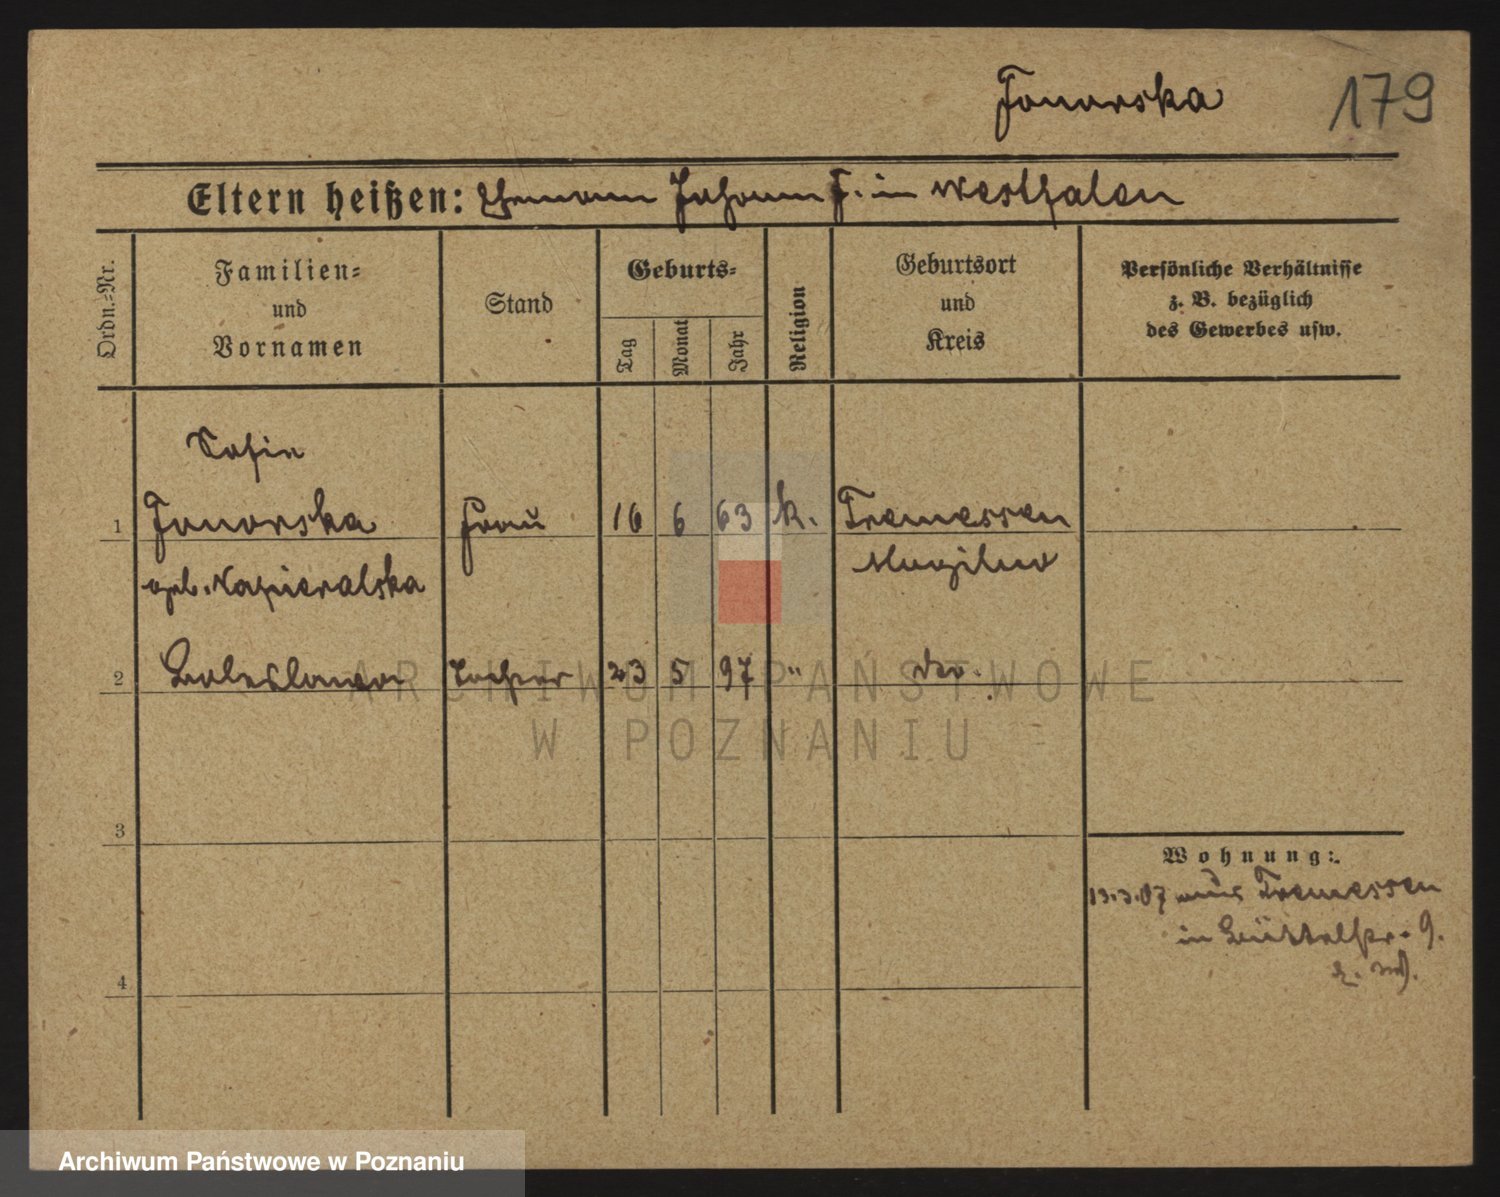 Jonarska
179
Eltern heißen: Ehemann Johann J. in Westfalen
Ordn.-Nr.
Familien-
und
Vornamen
Stand
Geburts-
Tag
Monat
Jahr
Religion
Geburtsort
und
Kreis
Persönliche Verhältnisse
z. B. bezüglich
des Gewerbes usw.
Sofie
1 Jonarska Frau 16 6 63 k. Tremessen
geb. Napieralska Mogilno
2 Boleslawa Tochter 23 5 97 " do.
3
Wohnung:
13.3.07 aus Tremessen
in Büttelstr. 9.
4
ARCHIWUM PAŃSTWOWE
W POZNANIU
Archiwum Państwowe w Poznaniu